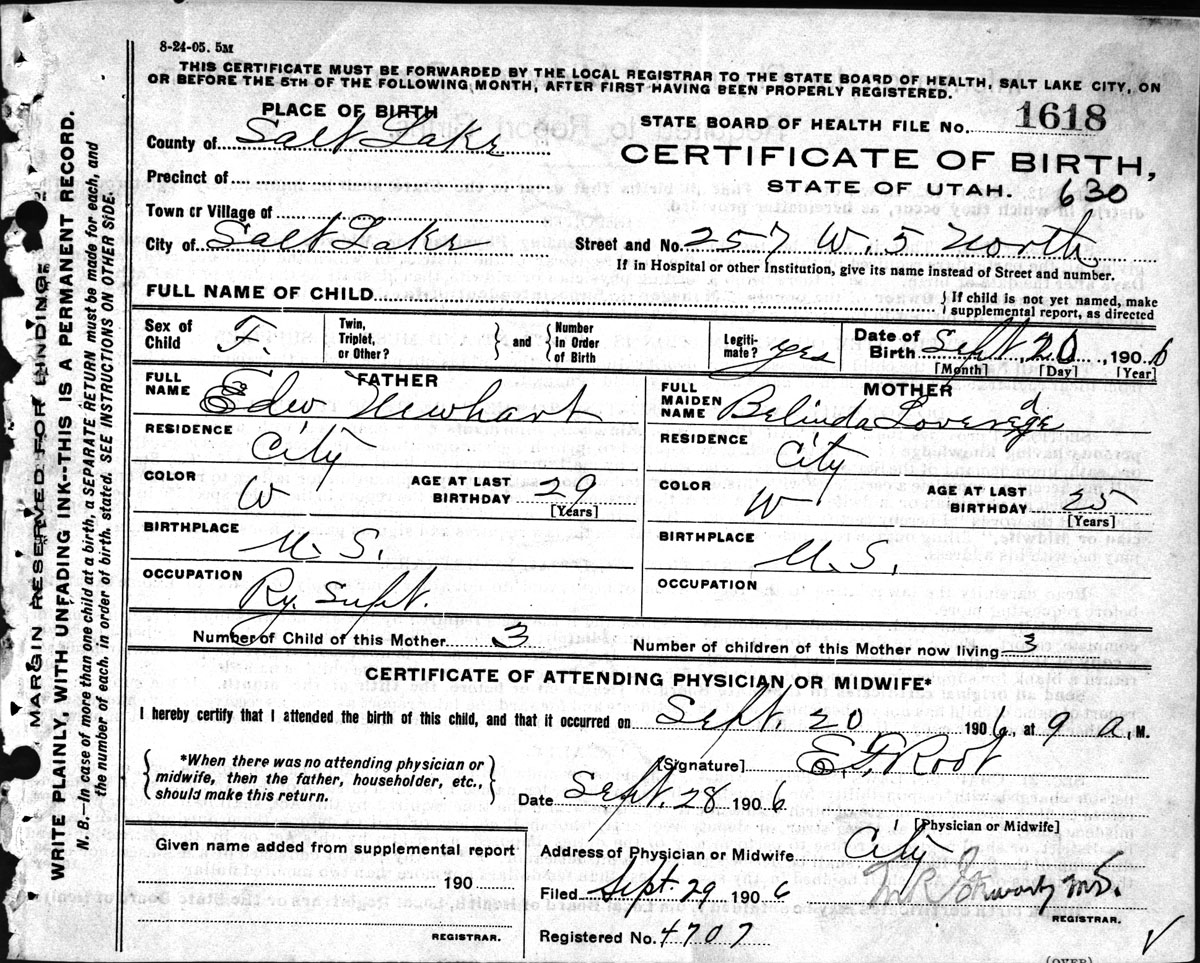 8-24-05. 5M
THIS CERTIFICATE MUST BE FORWARDED BY THE LOCAL REGISTRAR TO THE STATE BOARD OF HEALTH, SALT LAKE CITY, ON
OR BEFORE THE 5TH OF THE FOLLOWING MONTH, AFTER FIRST HAVING BEEN PROPERLY REGISTERED.
PLACE OF BIRTH
STATE BOARD OF HEALTH FILE No. 1618
County of Salt Lake
CERTIFICATE OF BIRTH,
Precinct of
STATE OF UTAH. 630
Town or Village of
City of Salt Lake Street and No. 257 W. 5 North
If in Hospital or other Institution, give its name instead of Street and number.
FULL NAME OF CHILD { If child is not yet named, make
supplemental report, as directed
Sex of Child F. Twin, Triplet, or Other? } and { Number in Order of Birth Legiti-mate? yes Date of Birth Sept. 20, 1906
[Month] [Day] [Year]
FATHER
FULL NAME Edw Newhart
RESIDENCE City
COLOR W AGE AT LAST BIRTHDAY 29
[Years]
BIRTHPLACE U. S.
OCCUPATION Ry. Supt.
MOTHER
FULL MAIDEN NAME Belinda Loveredge
RESIDENCE City
COLOR W AGE AT LAST BIRTHDAY 25
[Years]
BIRTHPLACE U. S.
OCCUPATION
Number of Child of this Mother 3 Number of children of this Mother now living 3
CERTIFICATE OF ATTENDING PHYSICIAN OR MIDWIFE*
I hereby certify that I attended the birth of this child, and that it occurred on Sept. 20 1906, at 9 a, M.
{ *When there was no attending physician or
midwife, then the father, householder, etc.,
should make this return. }
[Signature] E. F. Root
Date Sept. 28 1906
[Physician or Midwife]
Given name added from supplemental report
190
REGISTRAR.
Address of Physician or Midwife City
Filed Sept. 29 1906
REGISTRAR.
Registered No. 4707
(OVER)
MARGIN RESERVED FOR BINDING
WRITE PLAINLY, WITH UNFADING INK--THIS IS A PERMANENT RECORD.
N. B.--In case of more than one child at a birth, a SEPARATE RETURN must be made for each, and
the number of each, in order of birth, stated. SEE INSTRUCTIONS ON OTHER SIDE.